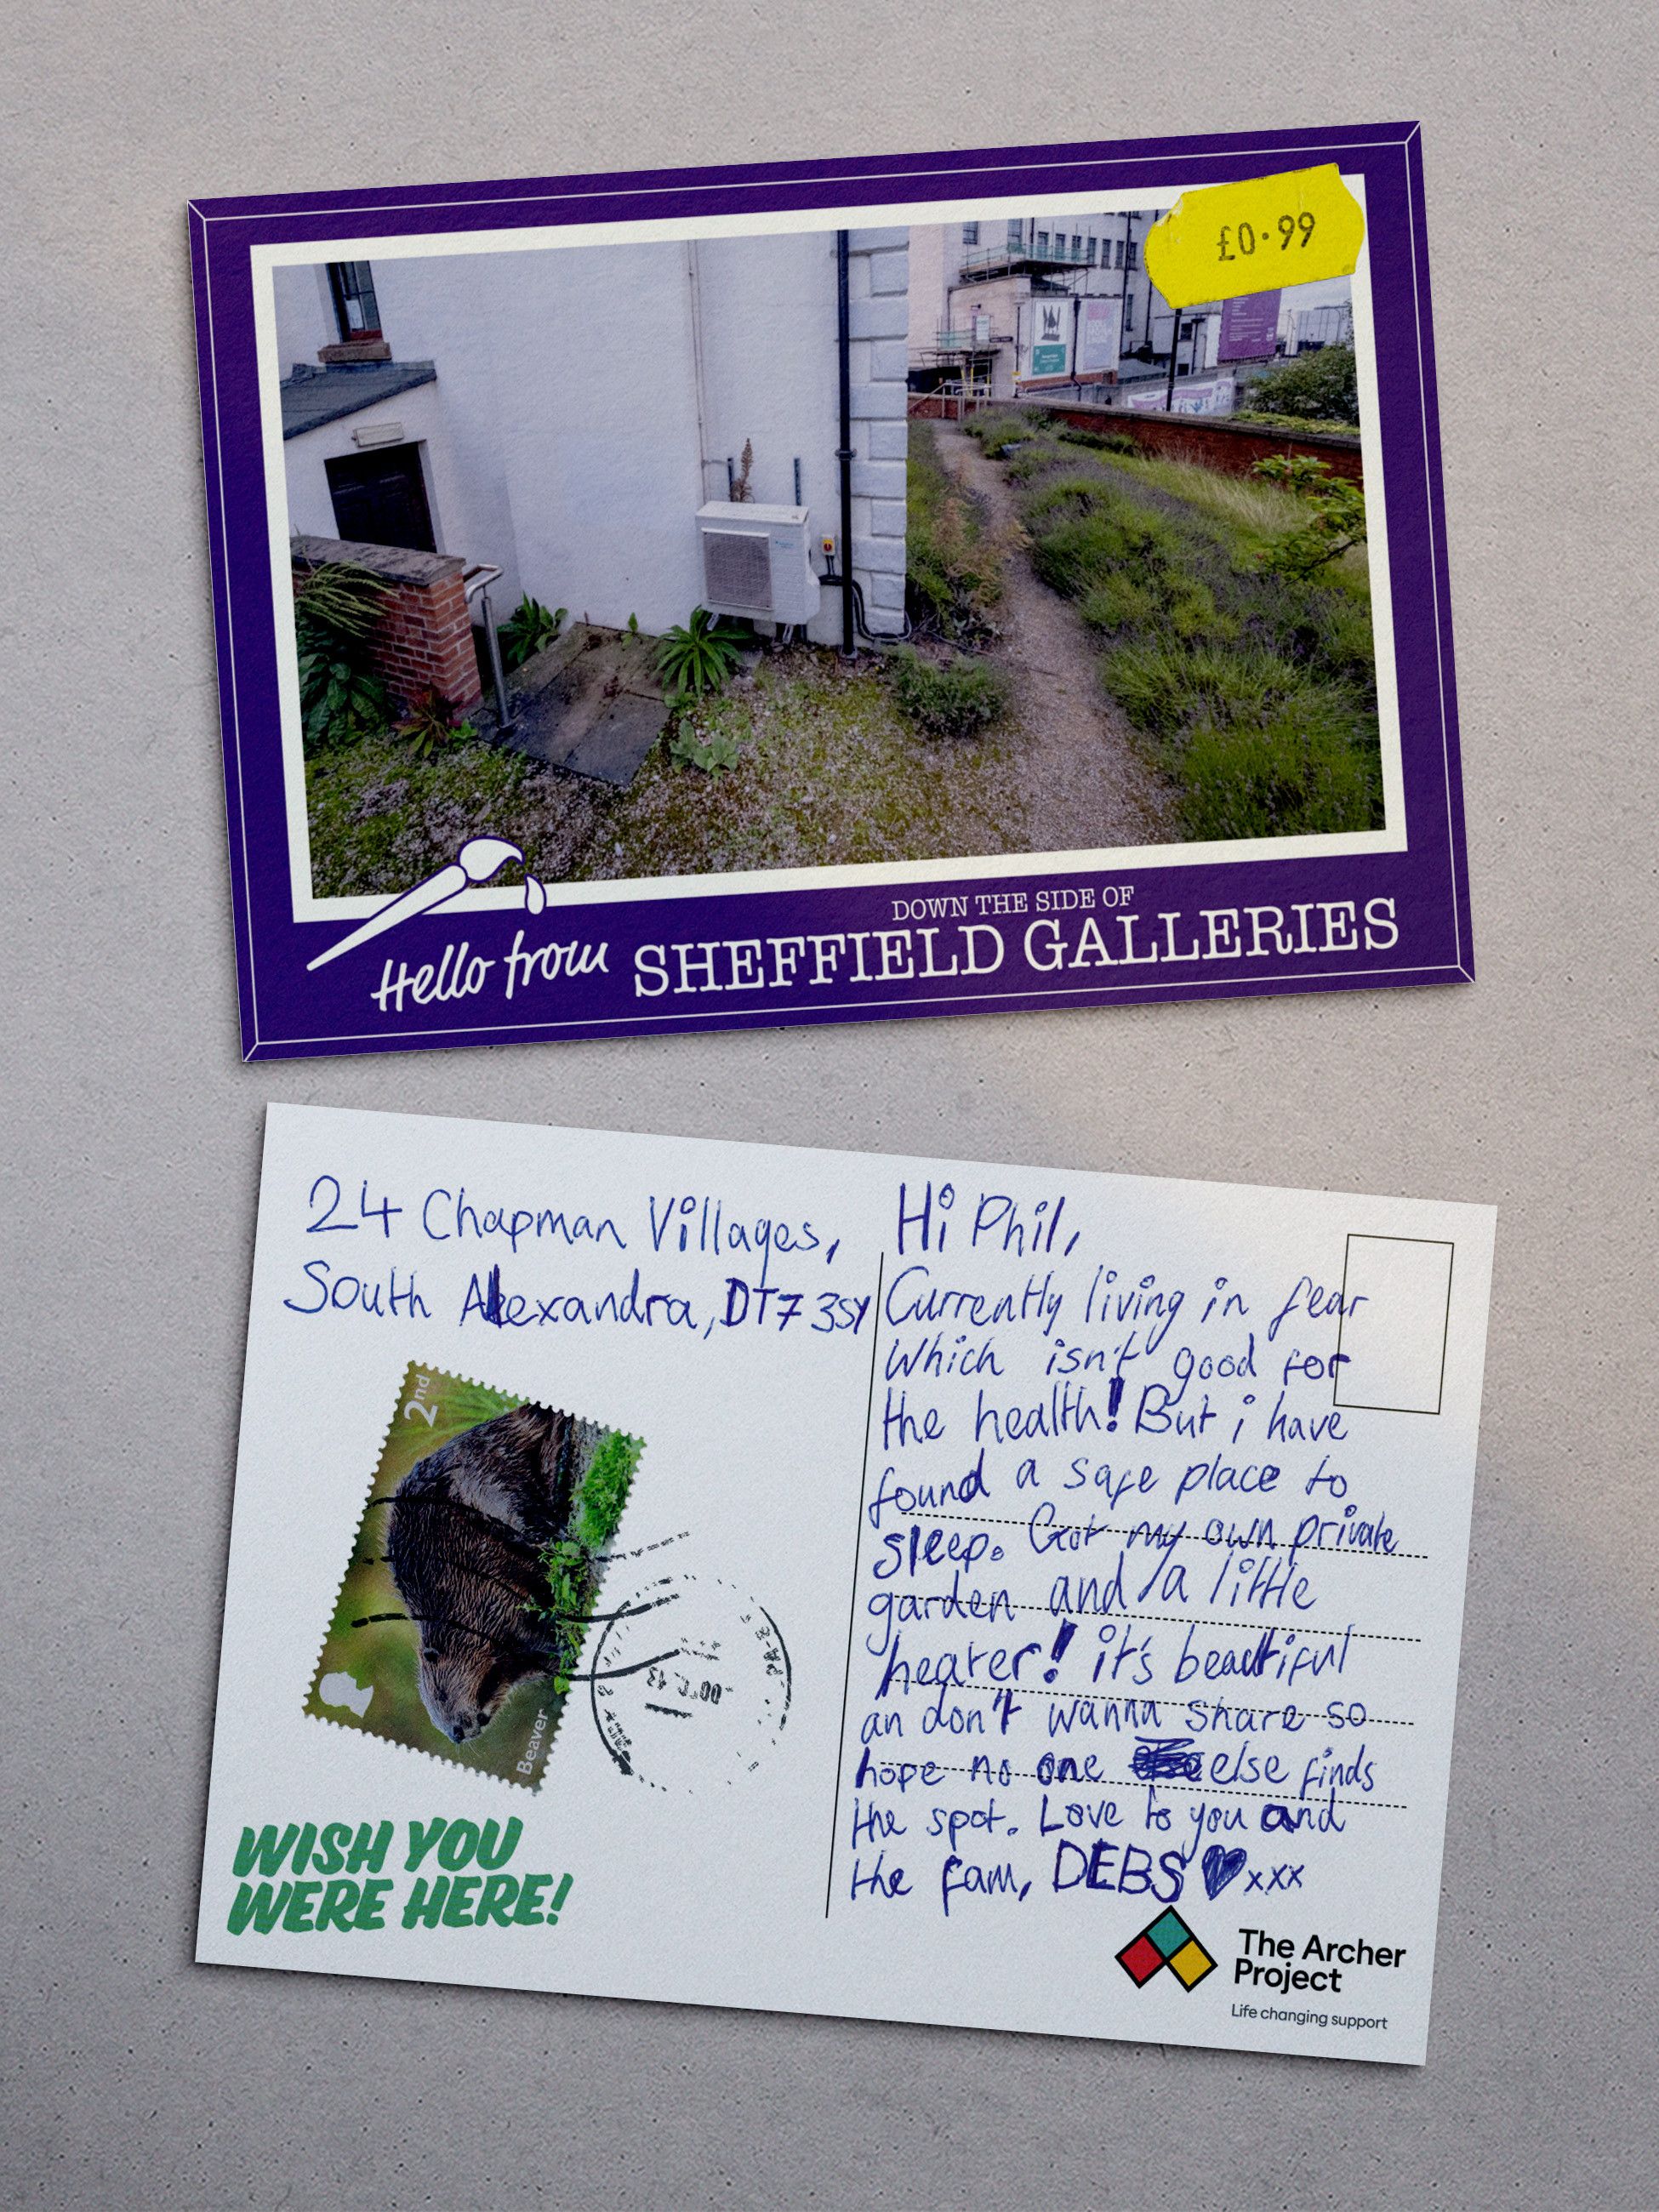 £0.99
DOWN THE SIDE OF
Hello from SHEFFIELD GALLERIES
24 Chapman Villages,
South Alexandra, DT7 3SY
2nd
Beaver
WISH YOU
WERE HERE!
Hi Phil,
Currently living in fear
which isn't good for
the health! But i have
found a safe place to
sleep. Got my own private
garden and a little
heater! it's beautiful
an don't wanna share so
hope no one else finds
the spot. Love to you and
the fam, DEBS ♥xxx
The Archer
Project
Life changing support